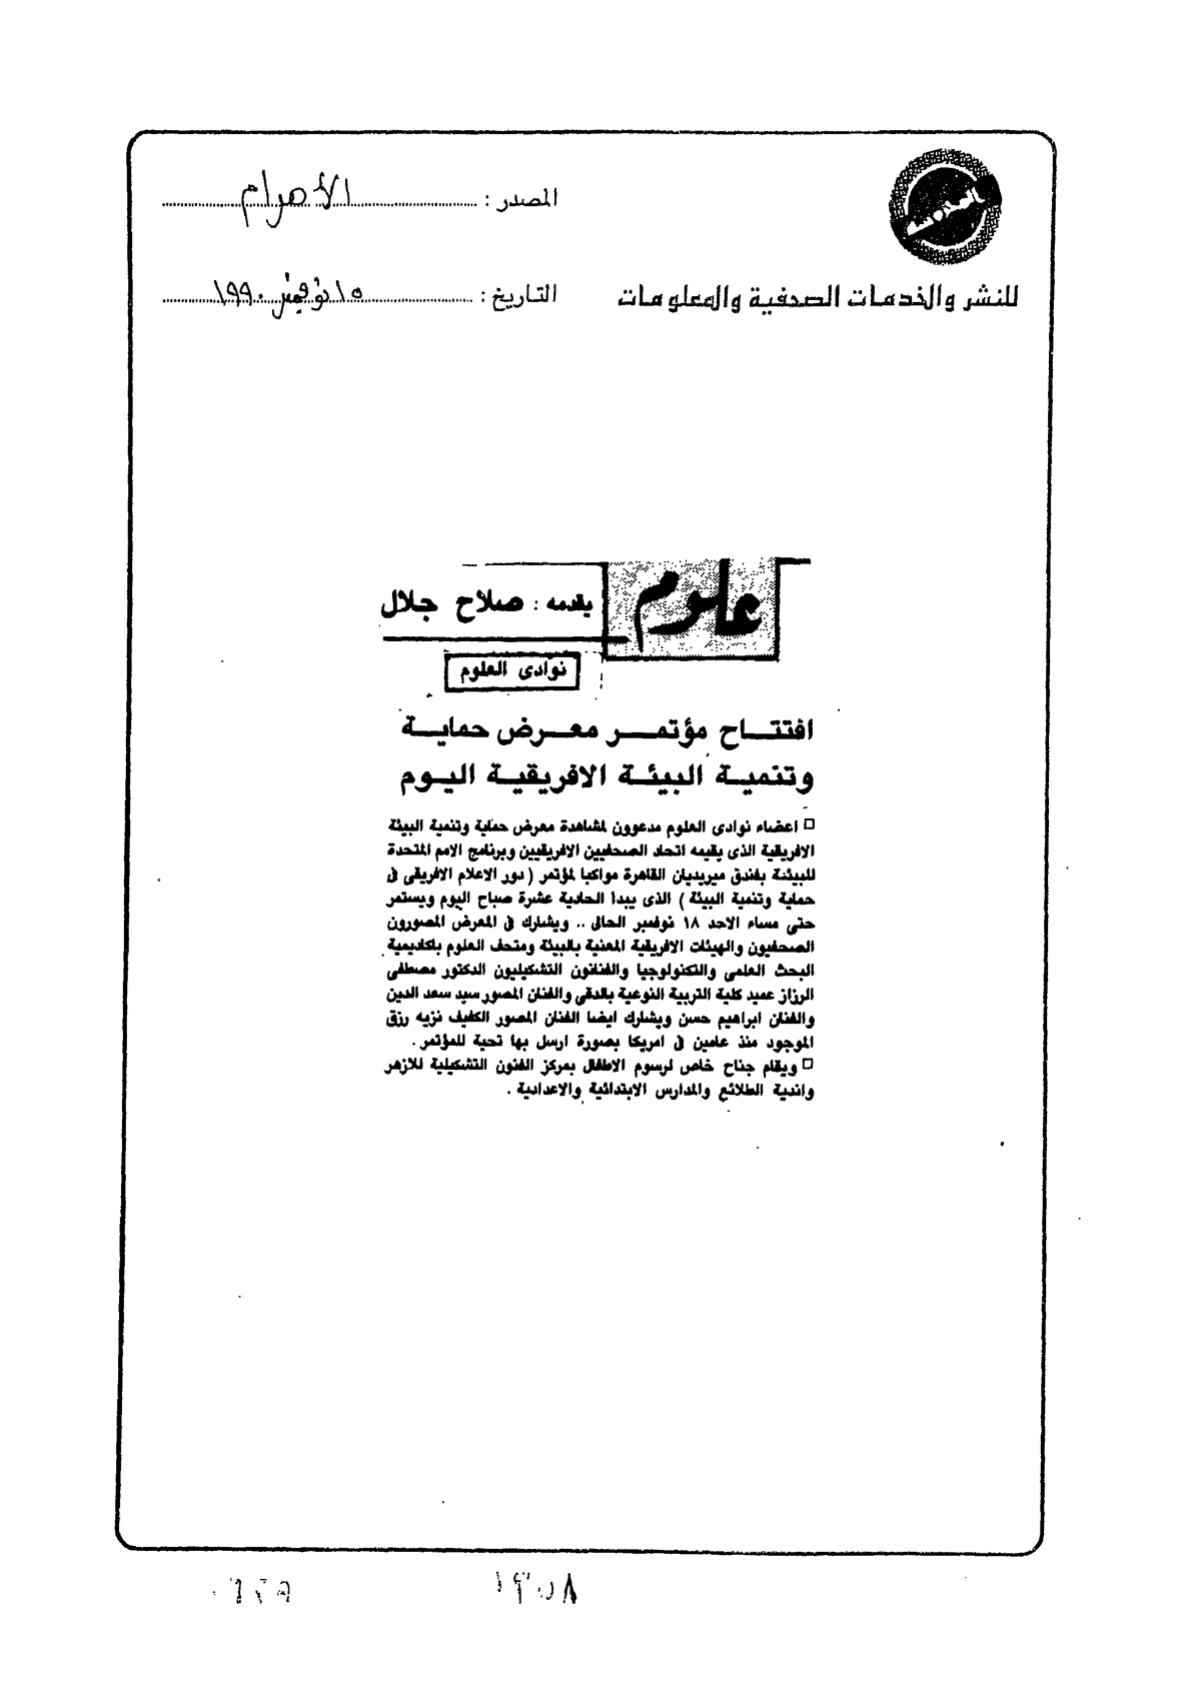 المصدر : الأهرام
للنشر والخدمات الصحفية والمعلومات
التاريخ : ١٥ نوفمبر ١٩٩٠
علوم
يقدمه : صلاح جلال
نوادى العلوم
افتتـــاح مؤتمـــر معـــرض حمايـــة
وتنميـة البيئـة الافريقيـة اليـوم
□ اعضاء نوادى العلوم مدعوون لمشاهدة معرض حماية وتنمية البيئة
الافريقية الذى يقيمه اتحاد الصحفيين الافريقيين وبرنامج الامم المتحدة
للبيئة بفندق ميريديان القاهرة مواكبا لمؤتمر ( دور الاعلام الافريقى فى
حماية وتنمية البيئة ) الذى يبدأ الحادية عشرة صباح اليوم ويستمر
حتى مساء الاحد ١٨ نوفمبر الحالى .. ويشارك فى المعرض المصورون
الصحفيون والهيئات الافريقية المعنية بالبيئة ومتحف العلوم باكاديمية
البحث العلمى والتكنولوجيا والفنانون التشكيليون الدكتور مصطفى
الرزاز عميد كلية التربية النوعية بالدقى والفنان المصور سيد سعد الدين
والفنان ابراهيم حسن ويشارك ايضا الفنان المصور الكفيف نزيه رزق
الموجود منذ عامين فى امريكا بصورة ارسل بها تحية للمؤتمر .
□ ويقام جناح خاص لرسوم الاطفال بمركز الفنون التشكيلية للازهر
واندية الطلائع والمدارس الابتدائية والاعدادية .